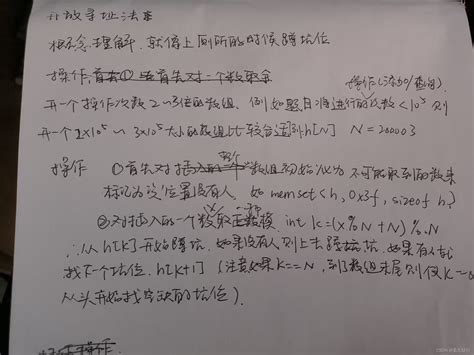 开放寻址法
概念理解, 就像上厕所的时候蹲坑位
操作(添加/查询)
开一个操作次数2~3倍的数组, 例如题目进行的次数<10^5 则
开一个2×10^5 ~ 3×10^5大小的数组比较合适 h[N] N=200003
操作 ①首先对整个数组初始化为不可能取到的数来
标记为该位置没有人, 如 memset<h, 0x3f, sizeof h>
②对插入的一个数取正模 int k=(x%N+N)%N
∴从h[k]开始蹲坑, 如果没有人则上去蹲坑, 如果有人就
找下一个坑位, h[k+1] (注意如果k==N, 到了数组末尾则使k=0
从头开始找空缺的坑位).